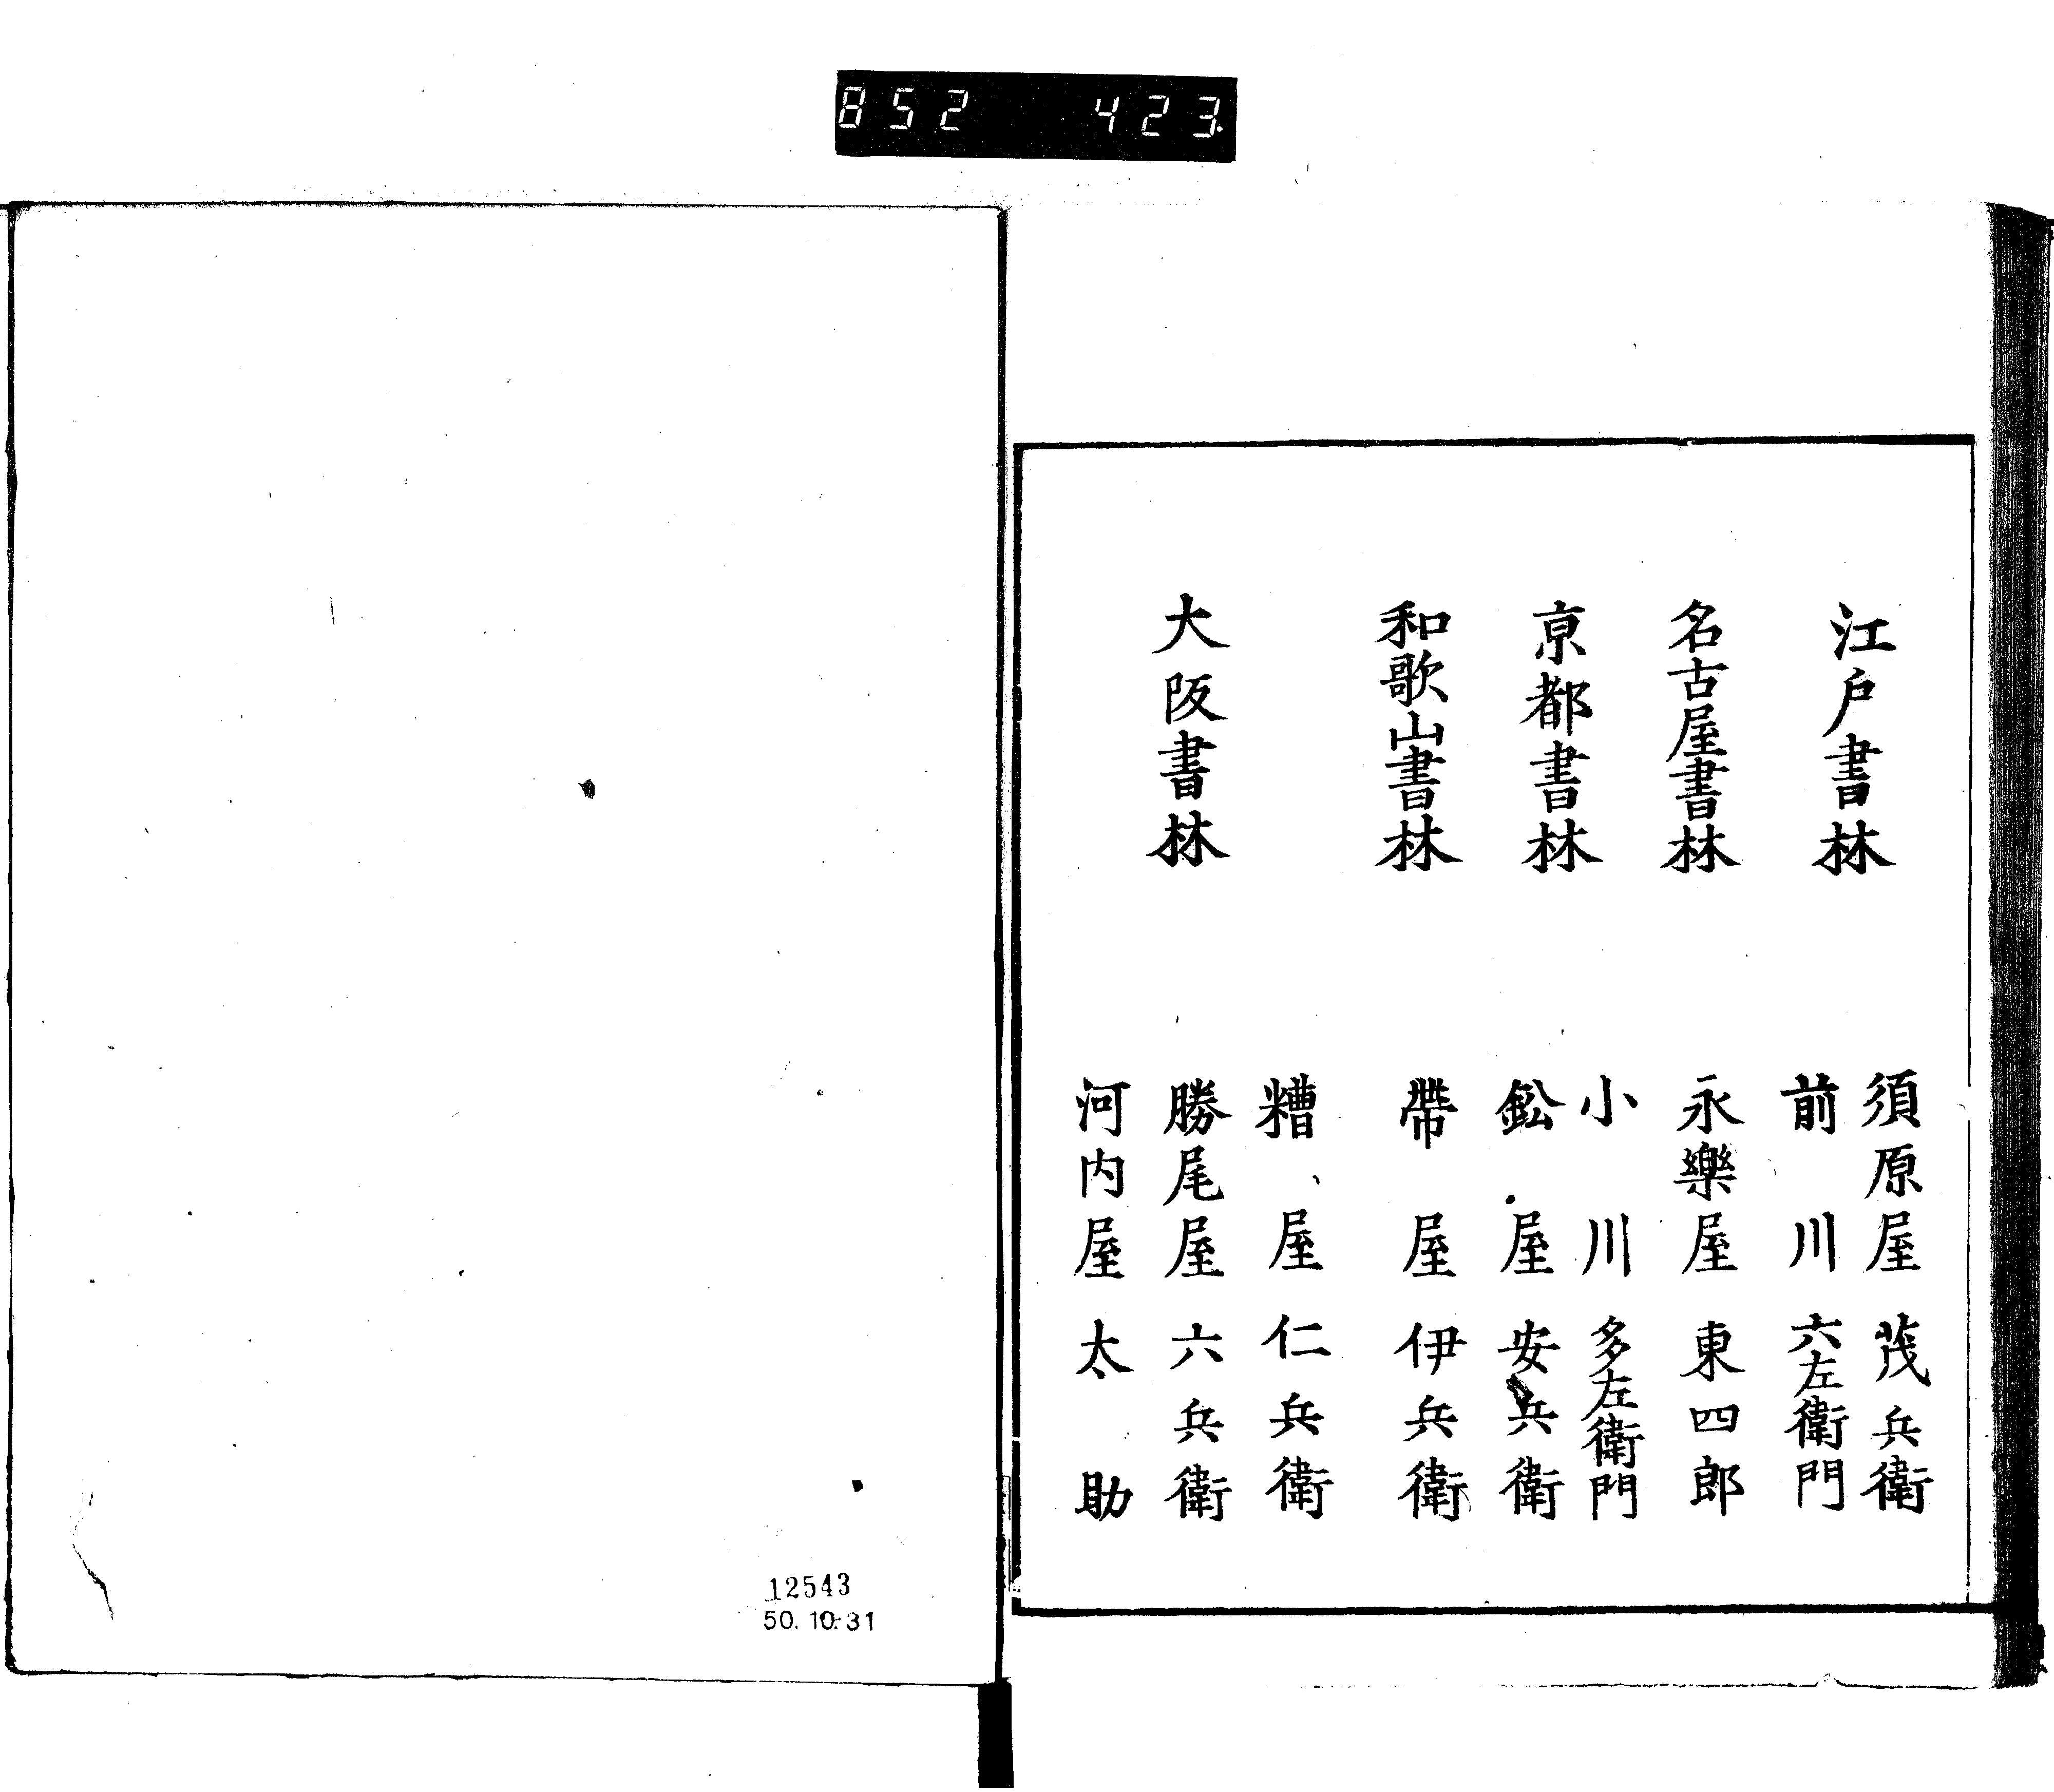 852 423
江戸書林
須原屋茂兵衛
前川六左衛門
名古屋書林
永樂屋東四郎
京都書林
小川多左衛門
鈆屋安兵衛
和歌山書林
帶屋伊兵衛
大阪書林
糟屋仁兵衛
勝尾屋六兵衛
河内屋太助
12543
50.10.31